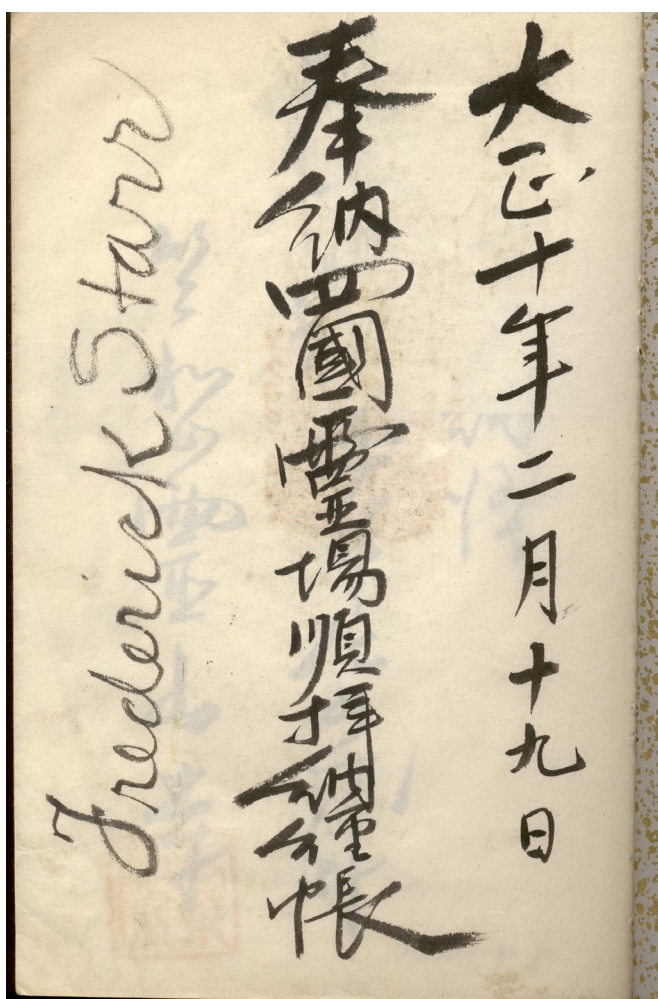 大正十年二月十九日
奉納四國靈場順拝納經帳
Frederick Starr